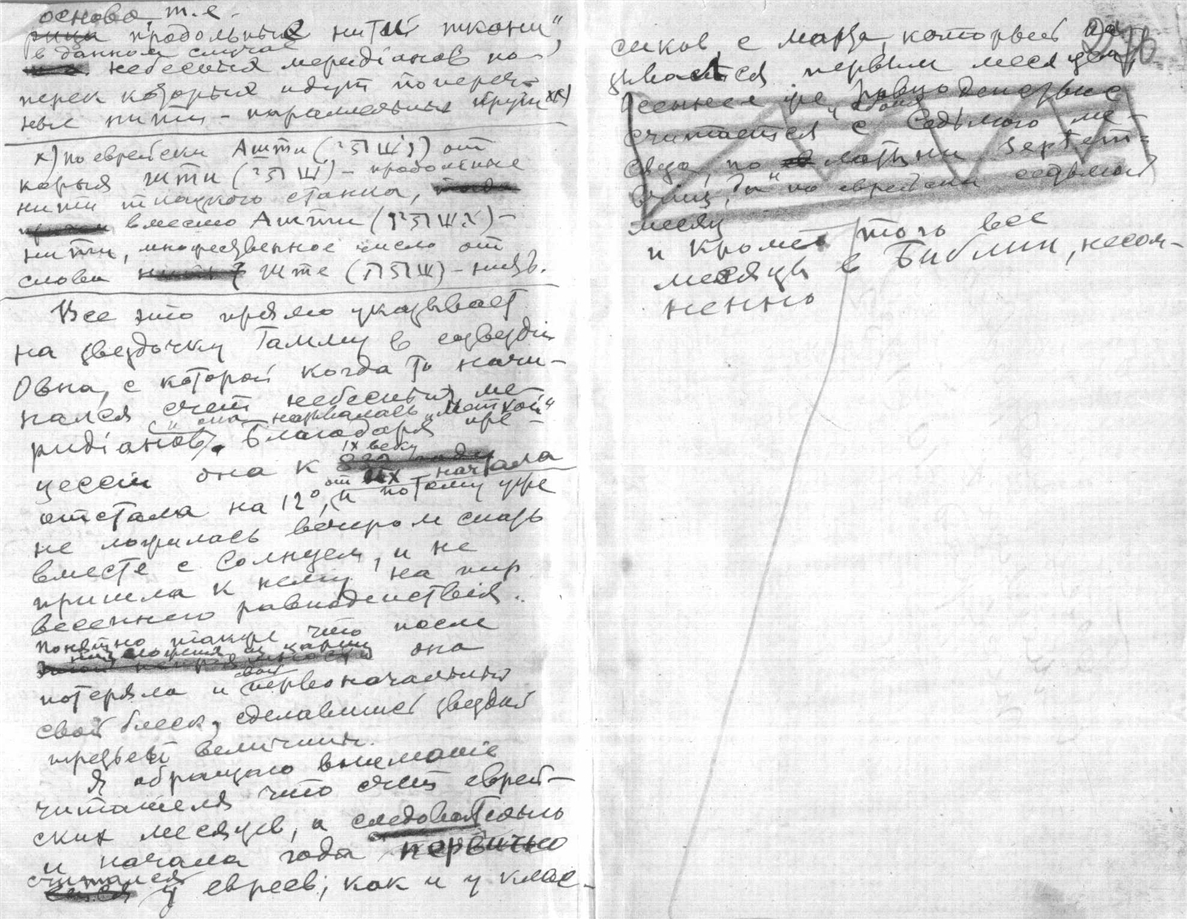 основа, т.е.
продольные нити ткани",
в данном случае
небесныя меридіанов по-
перек которых идут попереч-
ные нити – параллельные круги х)
х) по еврейски Ашти (יתשא) от
корня Шти (יתש) – продольные
нити ткацкого станка,
вместо Ашти (יתשא) –
нити, множественное число от
слова Ште (התש) – нить.
Все это прямо указывает
на звездочку Гамму в созвездіи
Овна, с которой когда то начи-
нался счет небесных ме-
ридіанов и она называлась "Меткой"
Благодаря пре-
IX веку
цессіи она к
от их начала
отстала на 12°, и потому уже
не ложилась вечером спать
вместе с Солнцем, и не
пришла к нему на пир
весеннего равноденствія.
Понятно также что после
она
потеряла и свой первоначальный
свой блеск, сделавшись звездой
третьей величины.
Я обращаю вниманіе
читателя что счет еврей-
ских месяцев, а следовательно
и начала года первично
считался у евреев, как и у клас-
сиков, с марта, который
первым месяцем
равноденствие
считается с седьмого ме-
сяца, по латыни Septem-
по еврейски седьмой
месяц
и кроме того все
месяцы с Библии, несом-
ненно